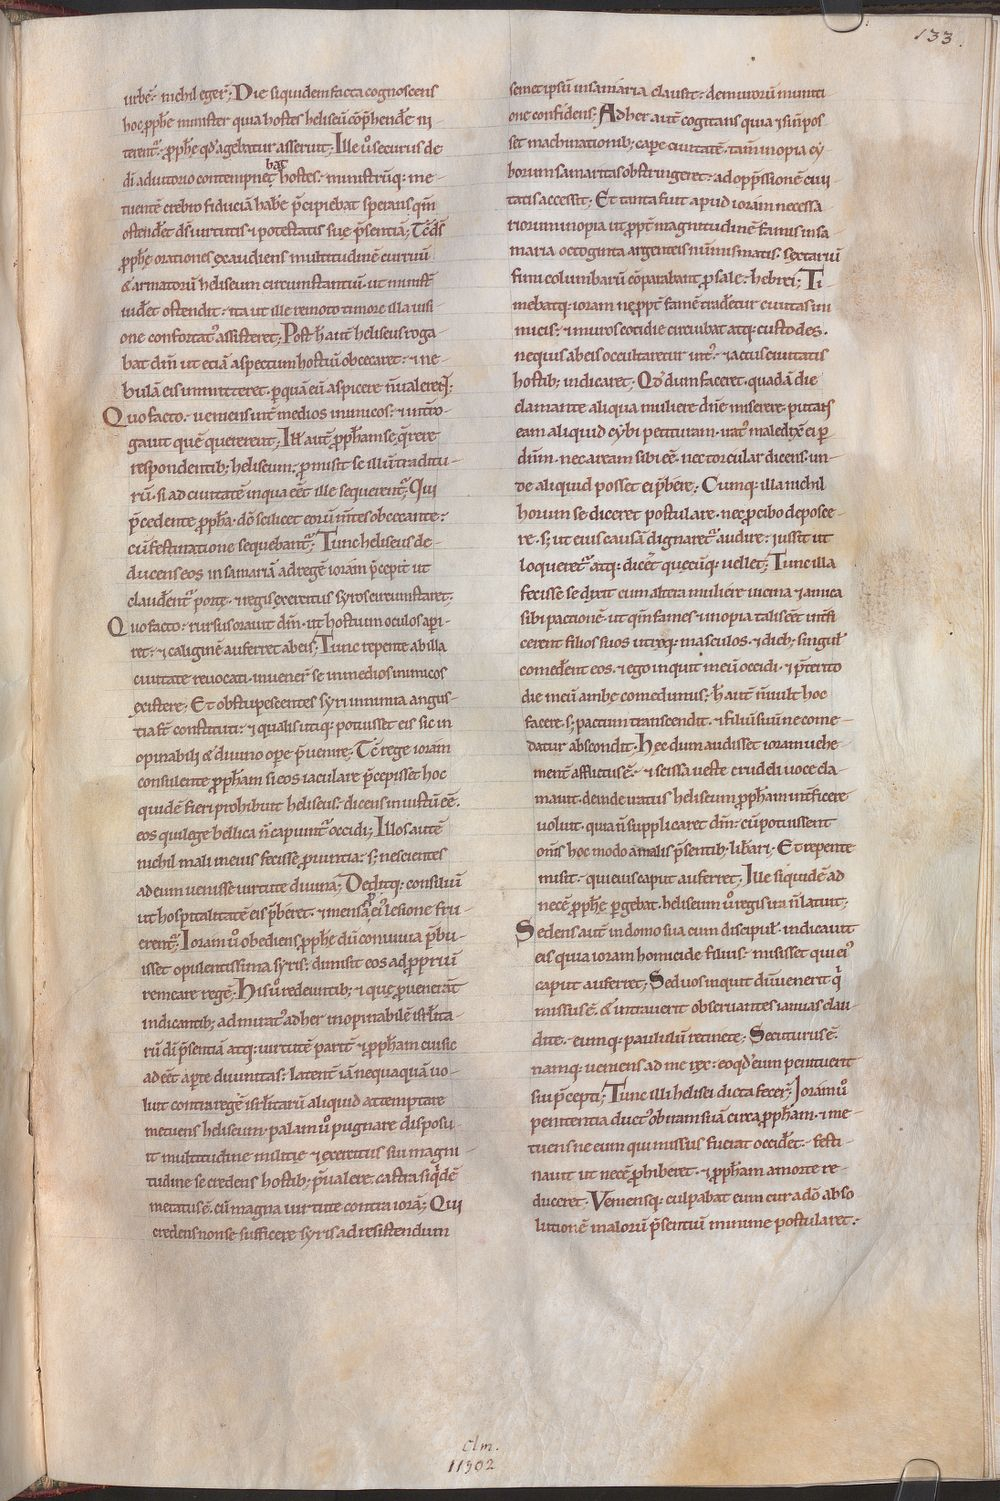 133.
urbē· nichil egeř; Die siquidem facta cognoscens
hoc ꝓph̄e minister quia hostes heliseū cōp̄hend̄e ni
terent᷑· ꝓph̄e qđ agebatur asseruit; Ille u᷎o securus de
bat
di adiutorio contempneꝫ hostes· ministrūq: me-
tuentē crebro fiduciā hab̄e p̄cipiebat sperans qm̄
ostend̄et dš uirtutis ⁊ potestatis suę p̄sentiā; Tc̄ dš
ꝓph̄e orationes exaudiens multitudinē curruū
& armatorū heliseum circumstantiū· ut ministř
uid̄et ostendit· ita ut ille remoto timore illa uisi
one confortat᷒ assisteret; Post h̄ aut̄ heliseus roga
bat dn̄m ut eciā aspectum hostiū obcecaret· ⁊ ne-
bulā eis inmitteret· ꝑ quā eū aspicere n̄ ualerent;
Quo facto· ueniens int̄ medios inimicos· ⁊ int̄ro-
gauit quē quererent; Illi aut̄ ꝓph̄am se q̄rere
respondentib; heliseum· ꝓmisit se illū traditu-
rū· si ad ciuitatē in qua eēt ille sequerent᷑; Qui
p̄cedente ꝓph̄a· dō scilicet eorū m̄tes obcecante·
cū festinatione sequebant᷑; Tunc heliseus de-
ducens eos in samariā ad regē iorām p̄cepit ut
claud̄ent᷑ portę· ⁊ regis exercitus syros circumstaret;
Quo facto· rursus orauit dn̄m· ut hostium oculos apri-
ret· ⁊ caliginē auferret ab eis; Tunc repente ab illa
ciuitate reuocati· inuener̄ se in medios inimicos
existere; Et obstupescentes syri nimia angus-
tia s̄t constituti· ⁊ qualis utiq: potuisset eis sic in
opinabili & diuino ope p̄uenire; Tc̄ rege ioram
consulente ꝓph̄am si eos iaculare p̄cepisset hoc
quidē fieri prohibuit heliseus· dicens iniustū eē·
eos qui lege bellica n̄ capiunt᷑ occidi; Illos autē
nichil mali in eius fecisse ꝓuintia· s; nescientes
ad eum uenisse uirtute diuina; Deditq: consiliū
ut hospitalitatē eis p̄beret· ⁊ mensā ei᷒ lesione fru-
erent᷑; Ioram u᷎o obediens ꝓph̄e dū conuiuia p̄bu-
isset opulentissima syris· dimisit eos ad ꝓpriū
remeare regē; His u᷎o redeuntib; ⁊ que ꝓuenerāt
indicantib; admirat᷒ adher inopinabilē isrłita-
rū di p̄sentiā atq: uirtutē pariť· ⁊ ꝓph̄am cui sic
adeēt apte diuinitas· latent̄ iā nequaquā uo-
luit contra regē isrłitarū aliquid attemptare
metuens heliseum· palam u᷎o pugnare disposu-
it multitudine militie ⁊ exercitus sui magni
tudine se credens hostib; p̄ualere· castra siq̇dē
metatus ē· cū magna uirtute contra iorā; Qui
credens non se sufficere syris ad resistendum
semet ipsū in samaria clausit· de murorū muniti
one confidens; Adher autē cogitans quia ⁊ si n̄ pos
set machinationib; cape ciuitatē· tam̄ inopia cy
borum samaritas obstringeret· ad opp̄ssionē ciui
tatis accessit; Et tanta fuit apud ioram necessa
riorum inopia ut ꝓpť magnitudinē famis in sa
maria octoginta argenteis nūmismatis· sextariū
fimi columbarū cōparabant ꝓ sale· hebrei; Ti
mebatq: ioram ne ꝓpť famē trad̄etur ciuitas ini
micis· ⁊ muros cotidie circuibat atq: custodes·
ne quis ab eis occultaretur int᷑· ⁊ actus ciuitatis
hostib; indicaret; Qđ dum faceret· quadā die
clamante aliqua muliere dn̄e miserere· putans
eam aliquid cybi petituram· irat᷒ maledixit ei ꝑ
dn̄m· nec aream sibi eē· nec torcular dicens· un-
de aliquid posset ei p̄bere; Cumq: illa nichil
horum se diceret postulare· nec ꝓ cibo deposce-
re· s; ut eius causā dignaret᷑ audire· iussit ut
loqueret᷑ atq: dicēt quęcūq: uellet; Tunc illa
fecisse se dixit cum altera muliere uicina ⁊ amica
sibi pactionē· ut qm̄ fames ⁊ inopia talis eēt int̄fi
cerent filios suos utręq: masculos· ⁊ dieb; singul̄
comed̄ent eos· ⁊ ego inquit meū occidi· ⁊ p̄terito
die meū ambe comedimus; h̄ aut̄ n̄ uult hoc
facere· s; pactum transcendit· ⁊ filiū suū ne come-
datur abscondit; Hęc dum audisset ioram uehe-
ment̄ afflictus ē· ⁊ scissa ueste crudeli uoce cla-
mauit· deinde iratus heliseum ꝓph̄am int̄ficere
uoluit· quia n̄ supplicaret dn̄m· cū potuissent
om̄s hoc modo a malis p̄sentib; lib̄ari; Et repente
misit· qui eius caput auferret; Ille siquidē ad
necē ꝓph̄e ꝑgebat· heliseum u᷎o regis ira n̄ latuit;
Sedens aut̄ in domo sua cum discipul̄· indicauit
eis quia ioram homicide filius· misisset qui ei᷒
caput auferret; Sed uos inquit dū uenerit q̇
missus ē· & intrauerit obseruantes ianuas clau
dite· eumq: paululū retinete; Seciturus ē·
namq: ueniens ad me rex· eo qđ eum peniteuerit
sui p̄cepti; Tunc illi helisei dicta fecer̄; Ioram u᷎o
penitentia duct᷒ ob iram suā circa ꝓph̄am· ⁊ me-
tuens ne eum qui missus fuerat occid̄et· festi-
nauit ut necē ꝓhiberet· ⁊ ꝓph̄am a morte re-
duceret· Veniensq: culpabat eum cur a dō abso
lutionē malorū p̄sentiū minime postularet·
clm.
11902